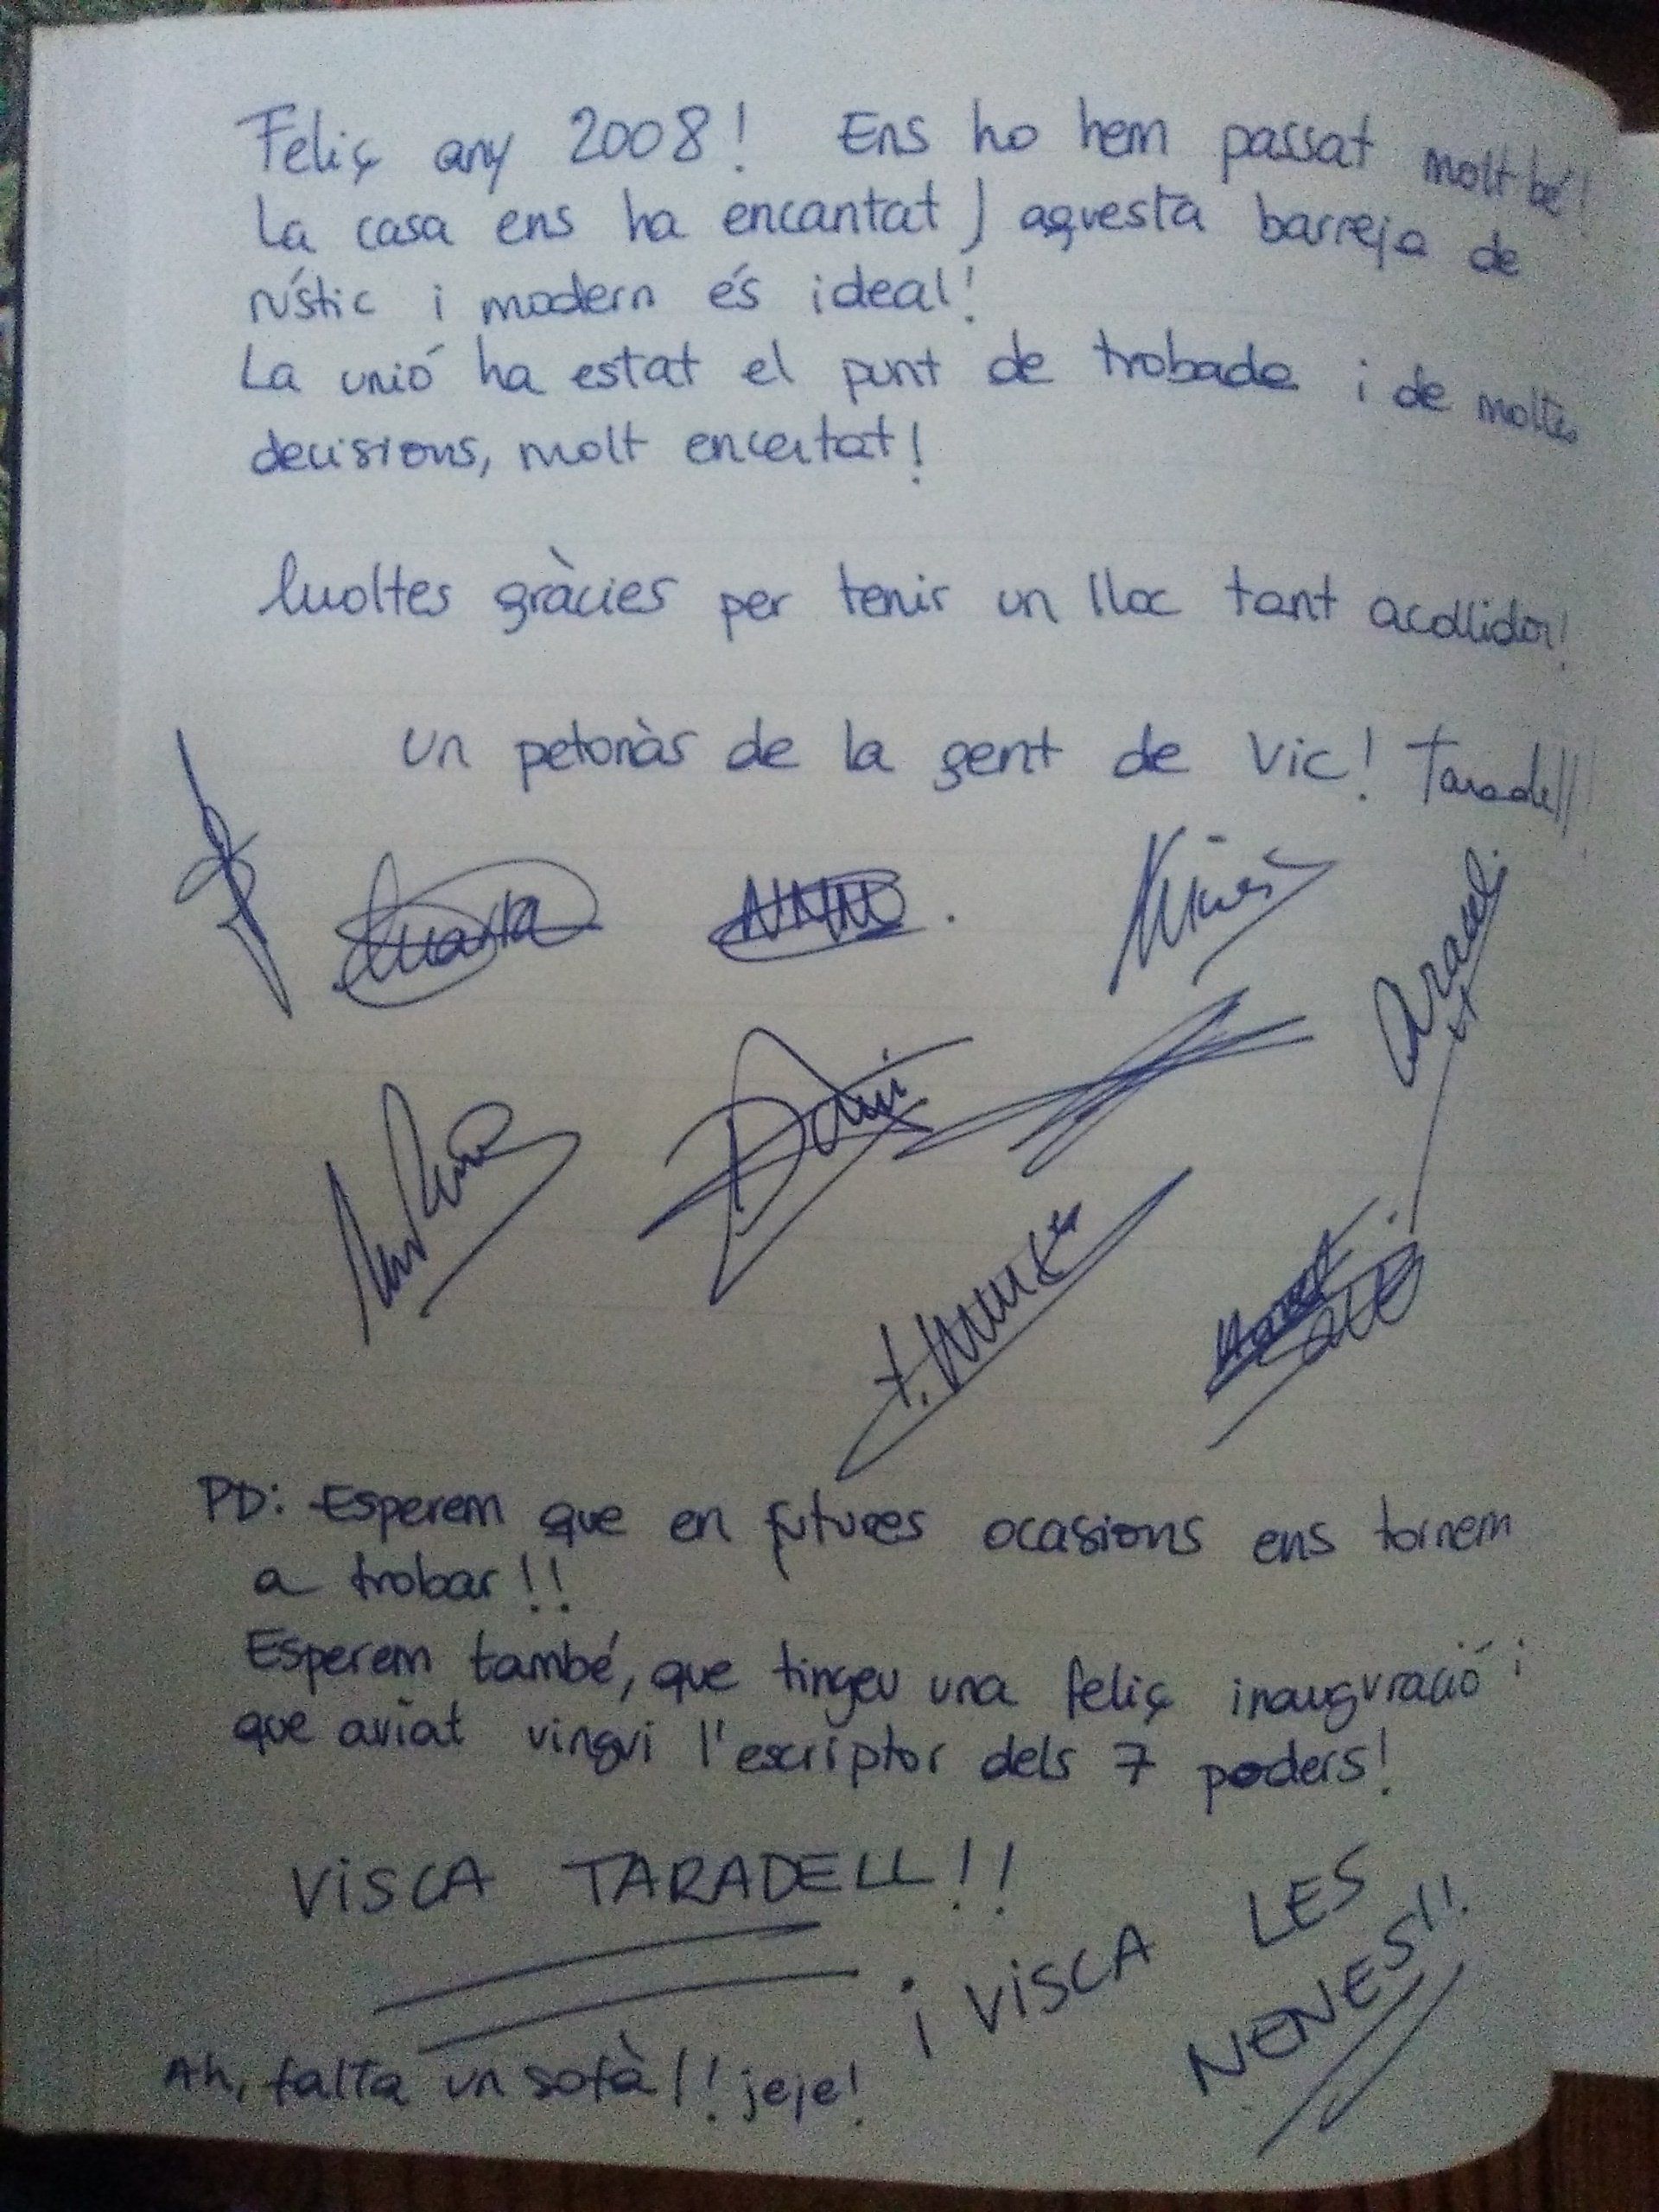 Feliç any 2008! Ens ho hem passat molt bé!
La casa ens ha encantat, aquesta barreja de
rústic i modern és ideal!
La unió ha estat el punt de trobada i de moltes
decisions, molt encertat!
Moltes gràcies per tenir un lloc tant acollidor!
Un petonàs de la gent de Vic! Taradell!
Marta
Araceli
Dani
PD: Esperem que en futures ocasions ens tornem
a trobar!!
Esperem també, que tingeu una feliç inauguració i
que aviat vingui l'escriptor dels 7 poders!
VISCA TARADELL!!
i VISCA LES
NENES!!
Ah, falta un sofà!! jeje!